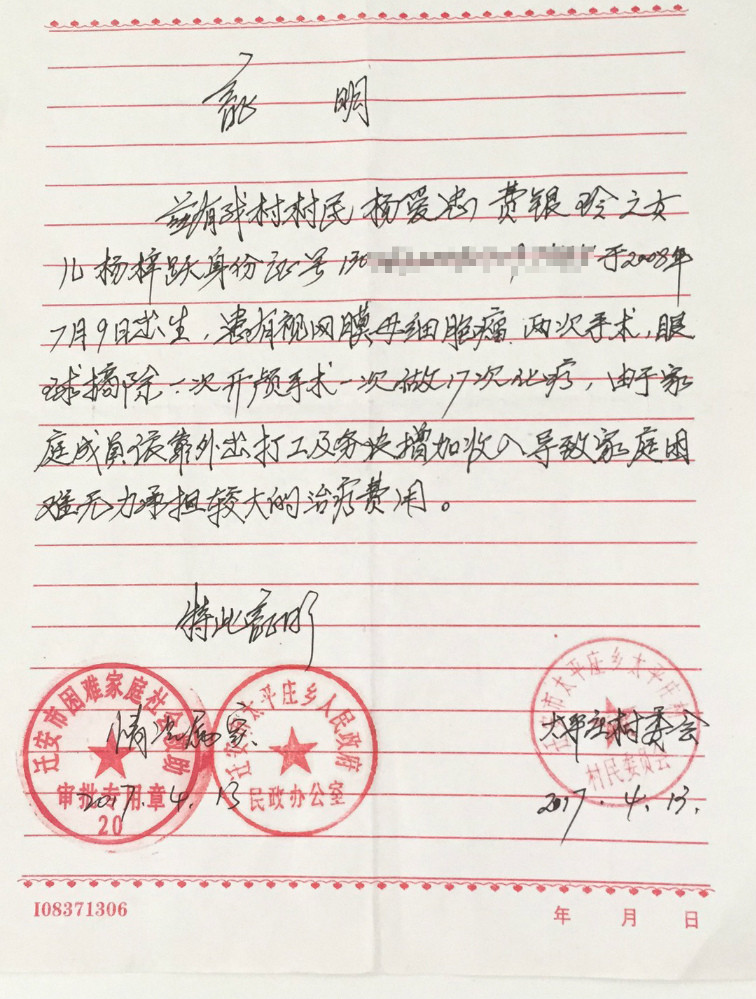 证 明
兹有我村村民杨爱忠费银玲之女
儿杨梓跃身份证号130 于2008年
7月9日出生,患有视网膜母细胞瘤.两次手术,眼
球摘除一次开颅手术一次做17次化疗,由于家
庭成员依靠外出打工及务农增加收入导致家庭困
难无力承担较大的治疗费用。
特此证明
迁安市困难家庭社会救助
审批专用章
20
情况属实
2017.4.13
迁安市太平庄乡人民政府
民政办公室
迁安市太平庄乡太平庄村
村民委员会
太平庄村委会
2017.4.13.
I08371306
年 月 日